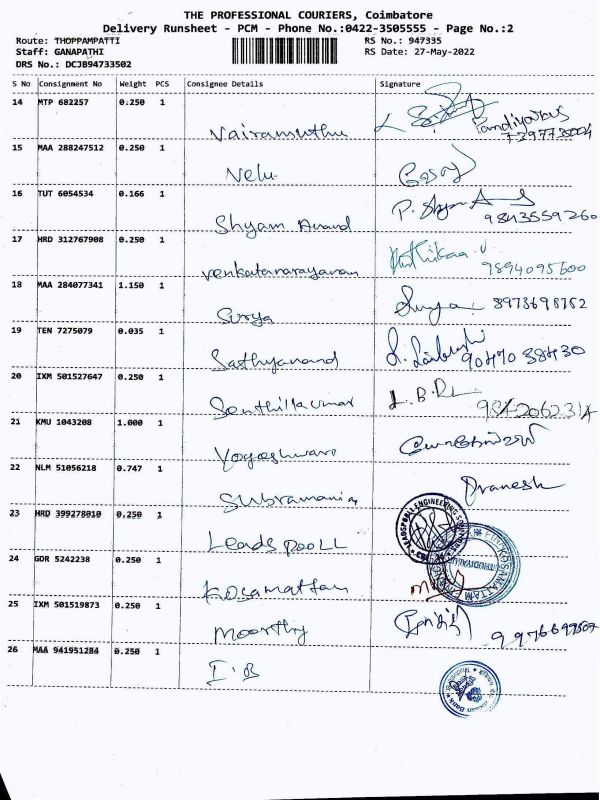 THE PROFESSIONAL COURIERS, Coimbatore
Delivery Runsheet - PCM - Phone No.:0422-3505555 - Page No.:2
Route: THOPPAMPATTI RS No.: 947335
Staff: GANAPATHI RS Date: 27-May-2022
DRS No.: DCJB94733502
S No Consignment No Weight PCS Consignee Details Signature
14 MTP 682257 0.250 1
Vairamuthu
15 MAA 288247512 0.250 1
Velu
16 TUT 6054534 0.166 1
Shyam Anand 9843559260
17 HRD 312767908 0.250 1
Venkatanarayanan 9894095600
18 MAA 284077341 1.150 1
Surya Surya 8973698762
19 TEN 7275079 0.035 1
Sathyanand 90470 38430
20 IXM 501527647 0.250 1
Senthilkumar L.B.
21 KMU 1043208 1.000 1
Yogeshwaro
22 NLM 51056218 0.747 1
Subramania Pranesh
23 HRD 399278010 0.250 1
Leads pooLL
24 GDR 5242238 0.250 1
Kosamattam
25 IXM 501519873 0.250 1
Moorthy
26 MAA 941951284 0.250 1
I.B